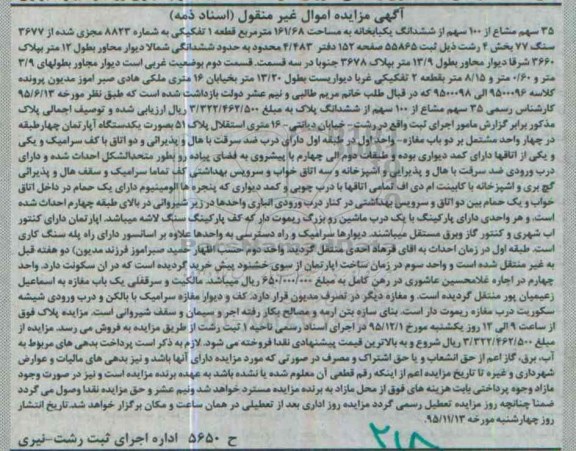 آگهی مزایده اموال غیر منقول (اسناد ذمه)
۳۵ سهم مشاع از ۱۰۰ سهم از ششدانگ یکبابخانه به مساحت ۱۶۱/۶۸ مترمربع قطعه ۱ تفکیکی به شماره ۸۸۲۳ مجزی شده از ۳۶۷۷
سنگ ۷۷ بخش ۴ رشت ذیل ثبت ۵۵۸۶۵ صفحه ۱۵۲ دفتر ۴/۴۸۳ محدود به حدود ششدانگی شمالا دیوار مجاور بطول ۱۲ متر بپلاک
۳۶۶۰ شرقا دیوار محاور بطول ۱۳/۹ متر بپلاک ۳۶۷۸ جنوبا در سه قسمت. قسمت دوم بوضعیت غربی است دیوار مجاور بطولهای ۳/۹
متر و ۰/۶۰ متر و ۸/۱۵ متر بقطعه ۲ تفکیکی غربا دیواریست بطول ۱۳/۲۰ متر بخیابان ۱۶ متری ملکی هادی صبر اموز مدیون پرونده
کلاسه ۹۵۰۰۰۹۶ الی ۹۵۰۰۰۹۸ که در قبال طلب خانم مریم طالبی و نیم عشر دولت بازداشت شده است که طبق نظر مورخه ۹۵/۶/۱۳
کارشناس رسمی ۳۵ سهم مشاع از ۱۰۰ سهم از ششدانگ پلاک به مبلغ ۳/۳۲۲/۴۶۲/۵۰۰ ریال ارزیابی شده و توصیف اجمالی پلاک
مذکور برابر گزارش مامور اجرای ثبت واقع در رشت - خیابان دیانتی - ۱۶ متری استقلال پلاک ۵۱ بصورت یکدستگاه آپارتمان چهارطبقه
در چهار واحد مشتمل بر دو باب مغازه - واحد اول در طبقه اول دارای درب ضد سرقت با هال و پذیرائی و دو اتاق با کف سرامیک و یکی
و یکی از اتاقها دارای کمد دیواری بوده و طبقات دوم الی چهارم با پیشروی به فضای پیاده رو بطور متحدالشکل احداث شده و دارای
درب ورودی ضد سرقت با هال و پذیرایی و آشپزخانه و سه اتاق خواب و سرویس بهداشتی کف تماما سرامیک و سقف هال و پذیرائی
گچ بری و اشپزخانه با کابینت ام دی اف تمامی اتاقها با درب چوبی و کمد دیواری که پنجره ها الومینیوم دارای یک حمام در داخل اتاق
خواب و یک حمام بین دو اتاق و سرویس بهداشتی در کنار درب ورودی انباری واحدها در زیر شیروانی در بالای طبقه چهارم احداث شده
است. و هر واحدی دارای پارکینگ با یک درب ماشین رو بزرگ ریموت دار که کف پارکینگ سنگ لاشه میباشد. اپارتمان دارای کنتور
اب شهری و کنتور گاز وبرق مستقل میباشند. دیوارها سرامیک و راه دسترسی به واحدها علاوه بر اسانسور دارای راه پله سنگ کاری
است. طبقه اول در زمان احداث به اقای فرهاد احدی منتقل گردید. واحد دوم حسب اظهار حمید صبراموز فرزند مدیون) دو هفته قبل
به غیر منتقل شده است و واحد سوم در زمان ساخت اپارتمان از سوی خشنود پیش خرید گردیده است که در ان سکونت دارد. واحد
چهارم در اجاره غلامحسین عاشوری در رهن کامل به مبلغ ۶۵۰/۰۰۰/۰۰۰ ریال میباشد. مالکیت و سرقفلی یک باب مغازه به اسماعیل
زعیمیان پور منتقل گردیده است. و مغازه دیگر در تصرف مدیون قرار دارد. کف و دیوار مغازه سرامیک با بالکن و درب ورودی شیشه
سکوریت درب مغازه ریموت دار است. بنای سازه بتن ارمه و مصالح بکار رفته اجر و سیمان و سقف شیروانی است. مزایده پلاک فوق
از ساعت ۹ الی ۱۲ روز یکشنبه مورخ ۹۵/۱۲/۱ در اجرای اسناد رسمی ناحیه ۱ ثبت رشت از طریق مزایده به فروش می رسد. مزایده از
مبلغ ۳/۳۲۲/۴۶۲/۵۰۰ ریال شروع و به بالاترین قیمت پیشنهادی نقدا فروخته می شود. لازم به ذکر است پرداخت بدهی های مربوط به
آب، برق، گاز اعم از حق انشعاب و یا حق اشتراک و مصرف در صورتی که مورد مزایده دارای آنها باشد و نیز بدهی های مالیات و عوارض
شهرداری و غیره تا تاریخ مزایده اعم از اینکه رقم قطعی آن معلوم شده یا نشده باشد به عهده برنده مزایده است و نیز در صورت وجود
مازاد وجوه پرداختی بابت هزینه های فوق از محل مازاد به برنده مزایده مسترد خواهد شد ونیم عشر و حق مزایده نقدا وصول می گردد
ضمنا چنانچه روز مزایده تعطیل رسمی گردد مزایده روز اداری بعد از تعطیلی در همان ساعت و مکان برگزار خواهد شد. تاریخ انتشار
روز چهارشنبه مورخه ۹۵/۱۱/۱۳.
ح ۵۶۵۰ اداره اجرای ثبت رشت-نیری
۲۱۸